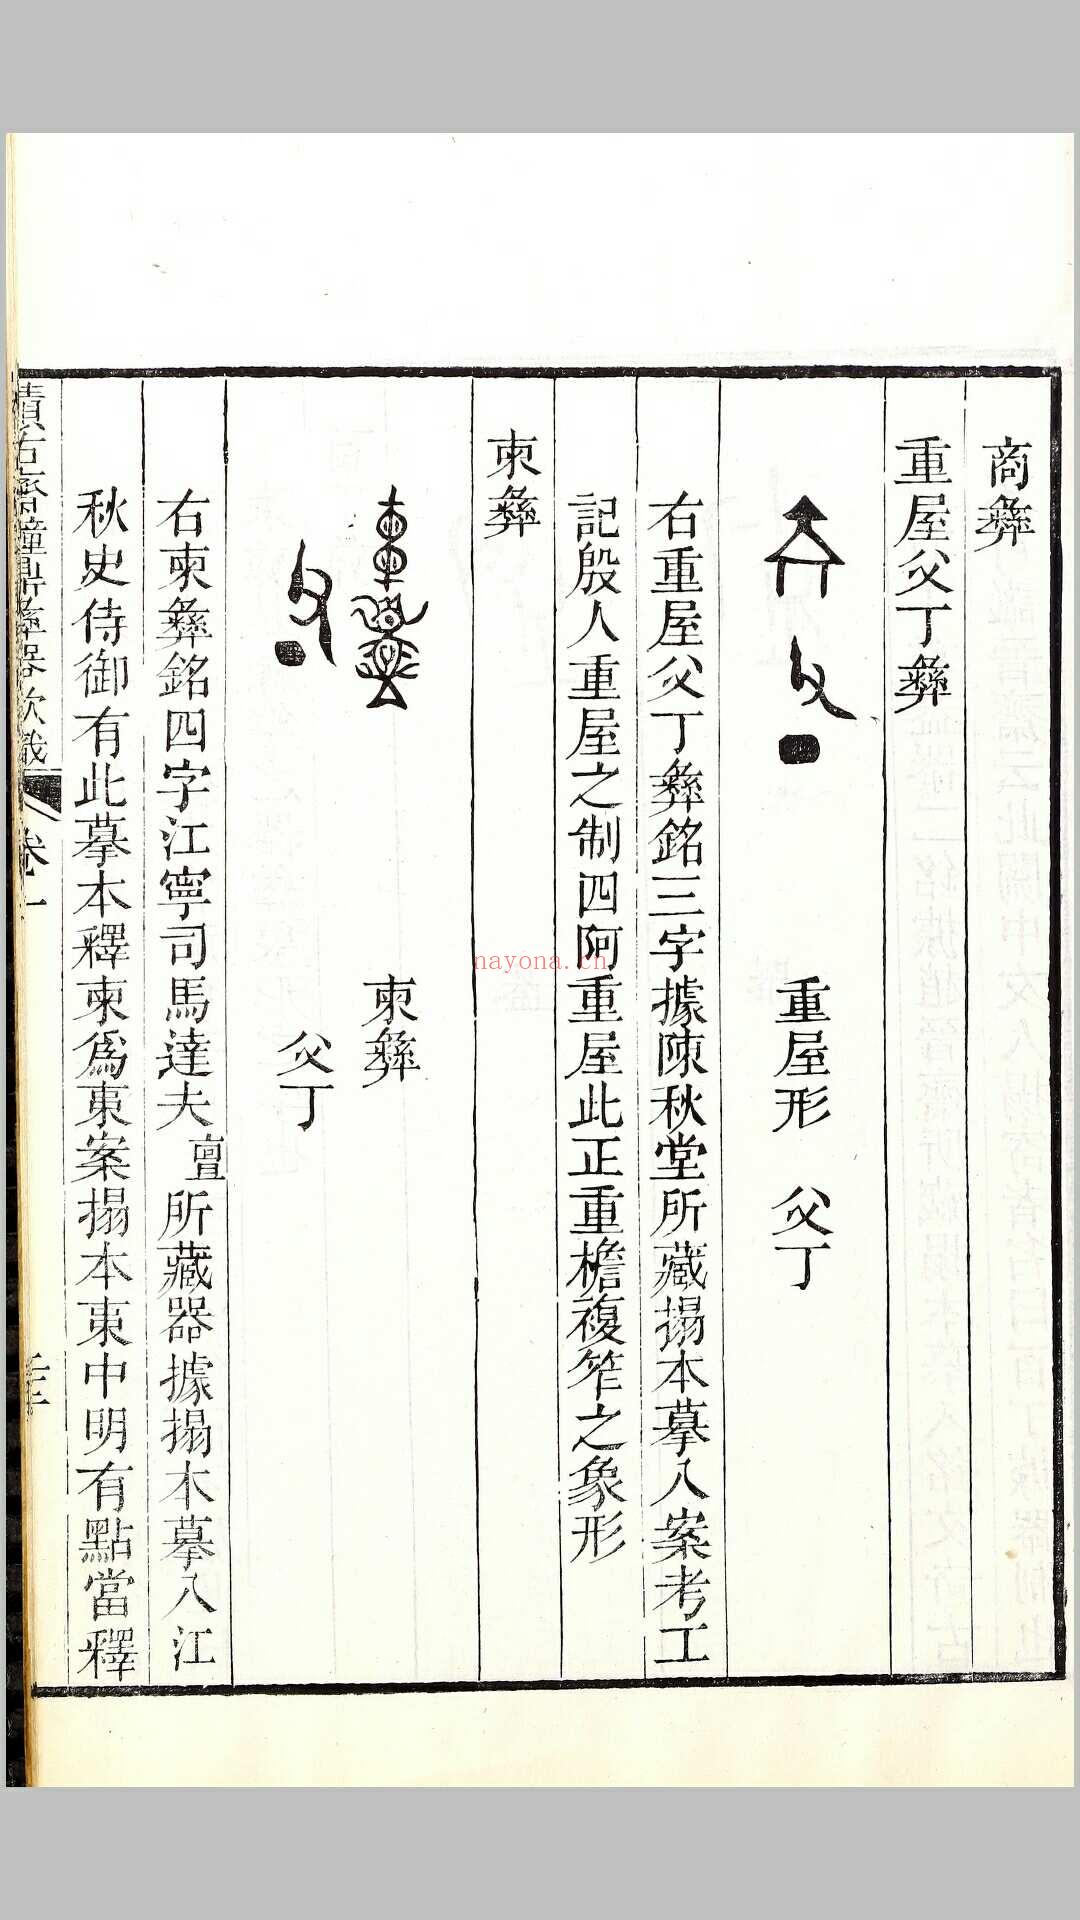 商彝
重屋父丁彝
重屋形 父丁
右重屋父丁彝銘三字據陳秋堂所藏搨本摹入案考工
記殷人重屋之制四阿重屋此正重檐複笮之象形
柬彝
柬彝
父丁
右柬彝銘四字江寧司馬達夫亶所藏器據搨本摹入江
秋史侍御有此摹本釋柬爲東案搨本東中明有點當釋
積古齋鐘鼎彝器款識 卷一
nayona.cn